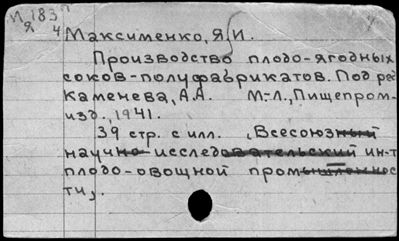 И 183 п
Я 4
Максименко, Я.И.
Производство плодо-ягодных
соков-полуфабрикатов. Под ред
Каменева, А.А. М.-Л., Пищепром-
изд., 1941.
39 стр. с илл. (Всесоюзный
научно-исследовательский ин-т
плодо-овощной промышленнос
ти).